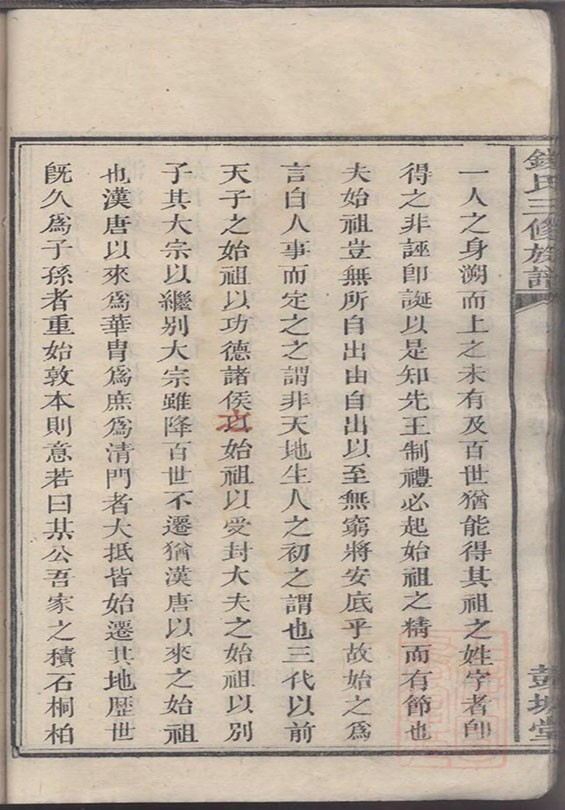 錢氏三修族譜
彭城堂
一人之身溯而上之未有及百世猶能得其祖之姓字者即
得之非誣即誕以是知先王制禮必起始祖之精而有節也
夫始祖豈無所自出由自出以至無窮將安底乎故始之為
言自人事而定之之謂非天地生人之初之謂也三代以前
天子之始祖以功德諸侯之始祖以受封大夫之始祖以別
子其大宗以繼別大宗雖降百世不遷猶漢唐以來之始祖
也漢唐以來為華胄為庶為清門者大抵皆始遷其地歷世
既久為子孫者重始敦本則意若曰某公吾家之積石桐柏